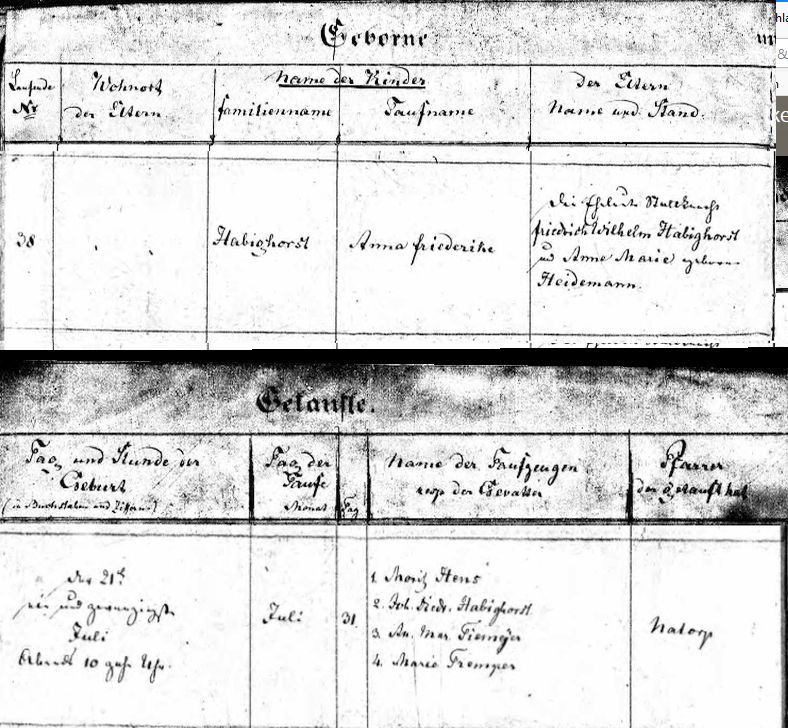 Geborne
Laufende Wohnort Name der Kinder Der Eltern
Nr der Eltern Familienname Taufname Name und Stand.
38 Habighorst Anna Friederike Die Eheleute
Friedrich Wilhelm Habighorst
und Anne Marie geborne
Heidemann.
Getaufte.
Tag und Stunde der Geburt
(in Buchstaben und Ziffern)
Tag der Taufe
Monat Tag
Name der Taufzeugen
resp der Gevatter
Pfarrer
der getauft hat
Der 21te
ein und zwanzigste
Juli
Abends 10 zehn Uhr.
Juli 31
1. Moritz Hens
2. Joh. Diedr. Habighorst
3. An. Mar. Tiemeyer
4. Marie Tremper
Natorp